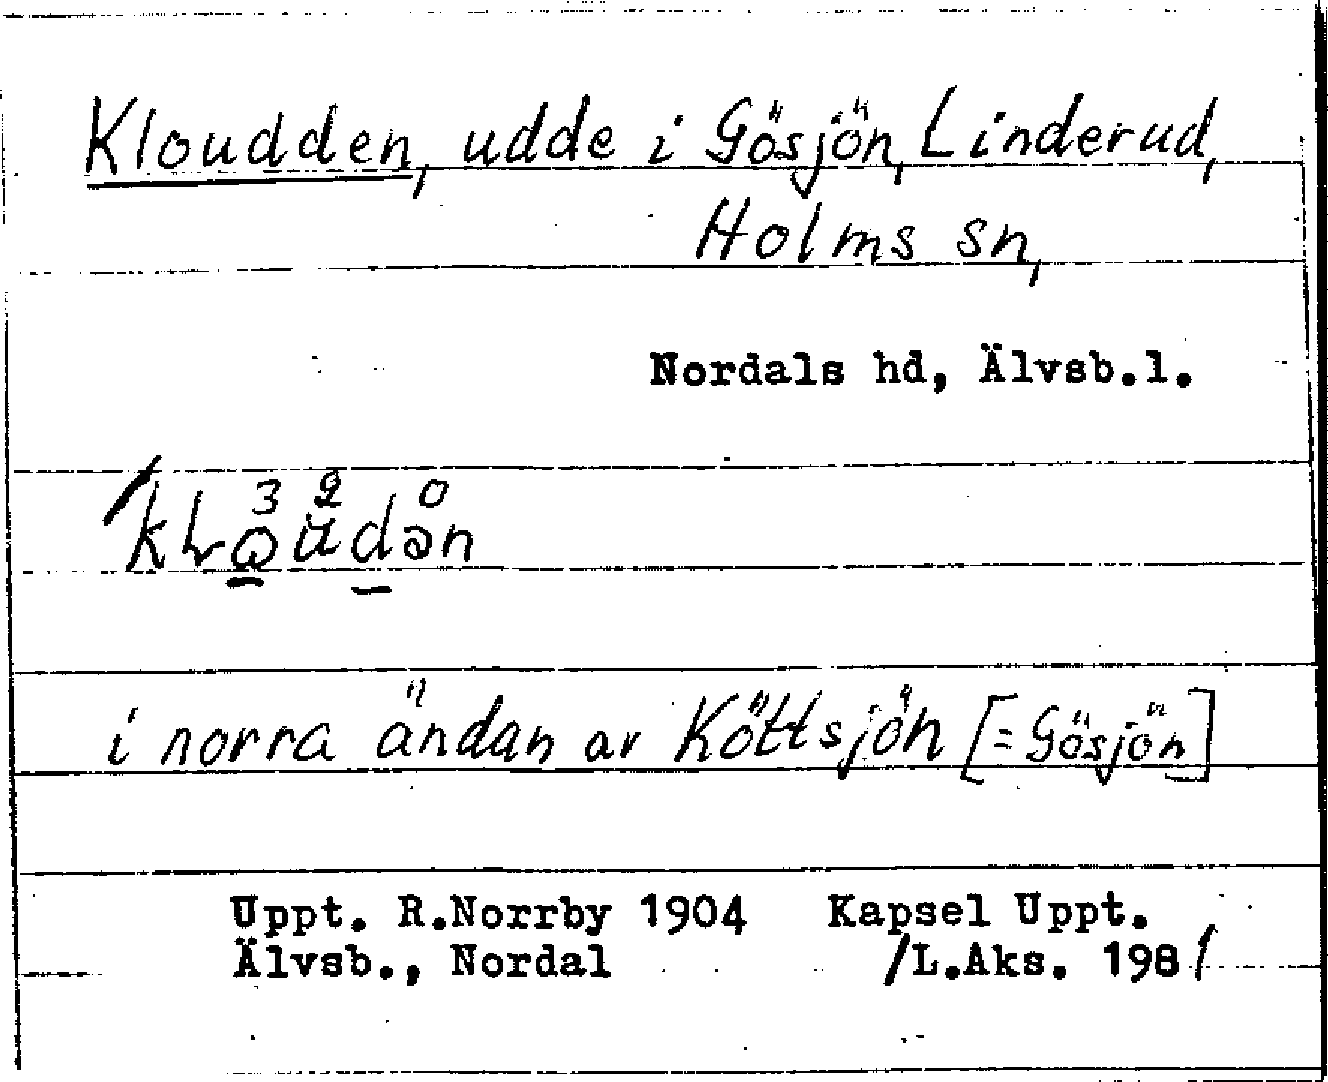 Kloudden, udde i Gösjön, Linderud,
Holms sn,
Nordals hd, Älvsb.l.
i norra ändan av Köttsjön [= Gösjön]
Uppt. R.Norrby 1904 Kapsel Uppt.
Älvsb., Nordal /L.Aks. 1981